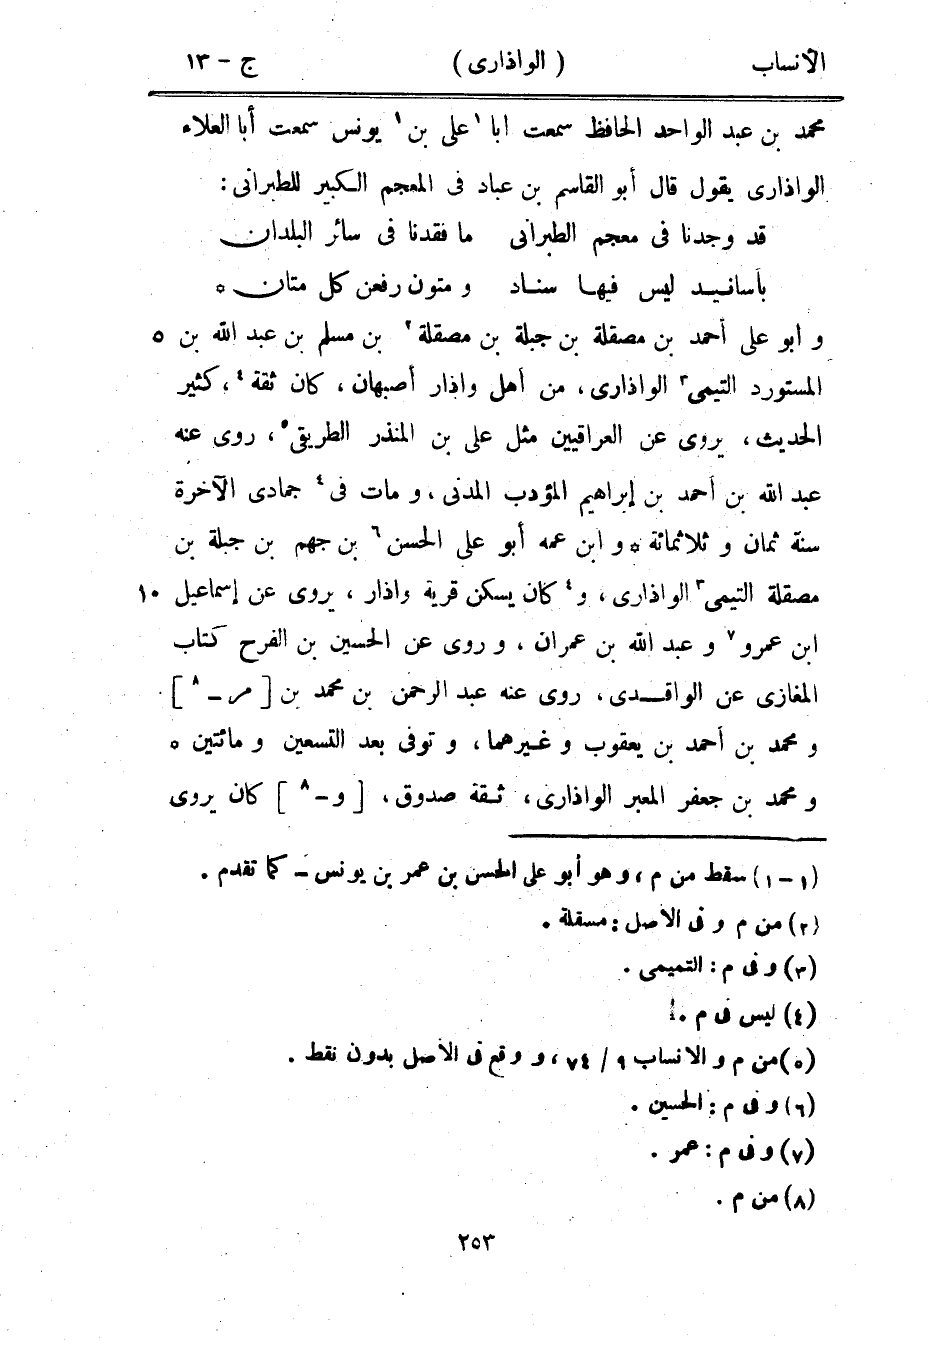 الأنساب ( الواذارى ) ج - ١٣
محمد بن عبد الواحد الحافظ سمعت ابا ١على بن١ يونس سمعت أبا العلاء
الواذارى يقول قال أبو القاسم بن عباد فى المعجم الكبير للطبرانى :
قد وجدنا فى معجم الطبرانى ما فقدنا فى سائر البلدان
بأسانيد ليس فيها سناد و متون رفعن كل متان ٥
و ابو على أحمد بن مصقلة بن جبلة بن مصقلة٢ بن مسلم بن عبد الله بن ٥
المستورد التيمى٣ الواذارى، من أهل واذار أصبهان، كان ثقة٤، كثير
الحديث، يروى عن العراقيين مثل على بن المنذر الطريقى٥، روى عنه
عبد الله بن أحمد بن إبراهيم المؤدب المدنى، و مات فى٤ جمادى الآخرة
سنة ثمان و ثلاثمائة ٥ و ابن عمه أبو على الحسن٦ بن جهم بن جبلة بن
مصقلة التيمى٣ الواذارى، و٤ كان يسكن قرية واذار، يروى عن إسماعيل ١٠
ابن عمرو٧ و عبد الله بن عمران، و روى عن الحسين بن الفرح كتاب
المغازى عن الواقدى، روى عنه عبد الرحمن بن محمد بن [ مر - ٨ ]
و محمد بن أحمد بن يعقوب و غيرهما، و توفى بعد التسعين و مائتين ٥
و محمد بن جعفر المعبر الواذارى، ثقة صدوق، [ و - ٨ ] كان يروى
(١-١) سقط من م، و هو أبو على الحسن بن عمر بن يونس - كما تقدم .
(٢) من م و فى الأصل : مسقلة .
(٣) و فى م : التميمى .
(٤) ليس فى م .
(٥) من م و الانساب ٩ / ٧٤، و وقع فى الأصل بدون نقط .
(٦) و فى م : الحسين .
(٧) و فى م : عمر .
(٨) من م .
٢٥٣